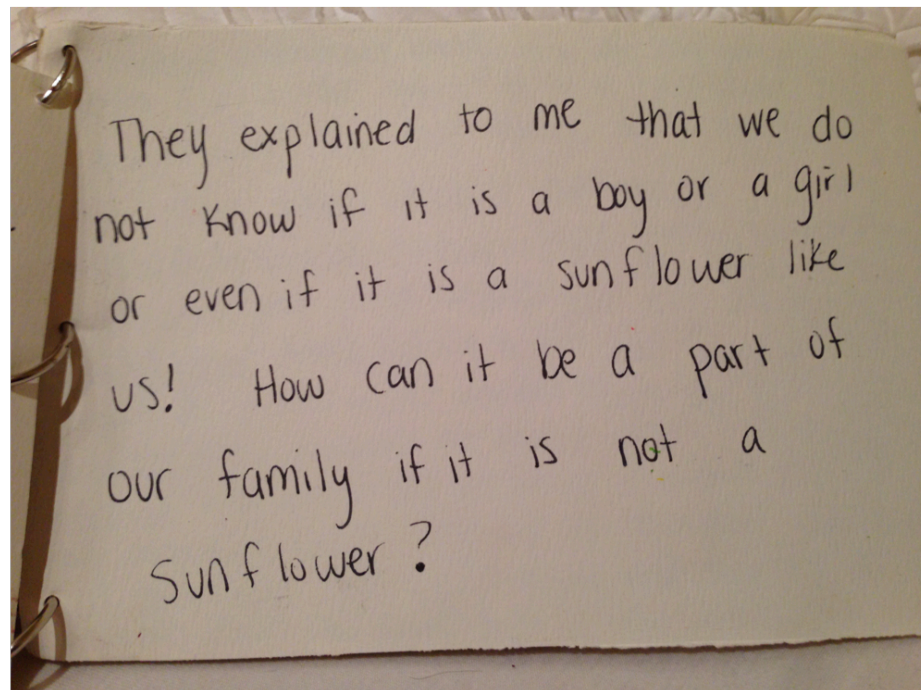 They explained to me that we do
not know if it is a boy or a girl
or even if it is a sunflower like
us! How can it be a part of
our family if it is not a
sunflower?